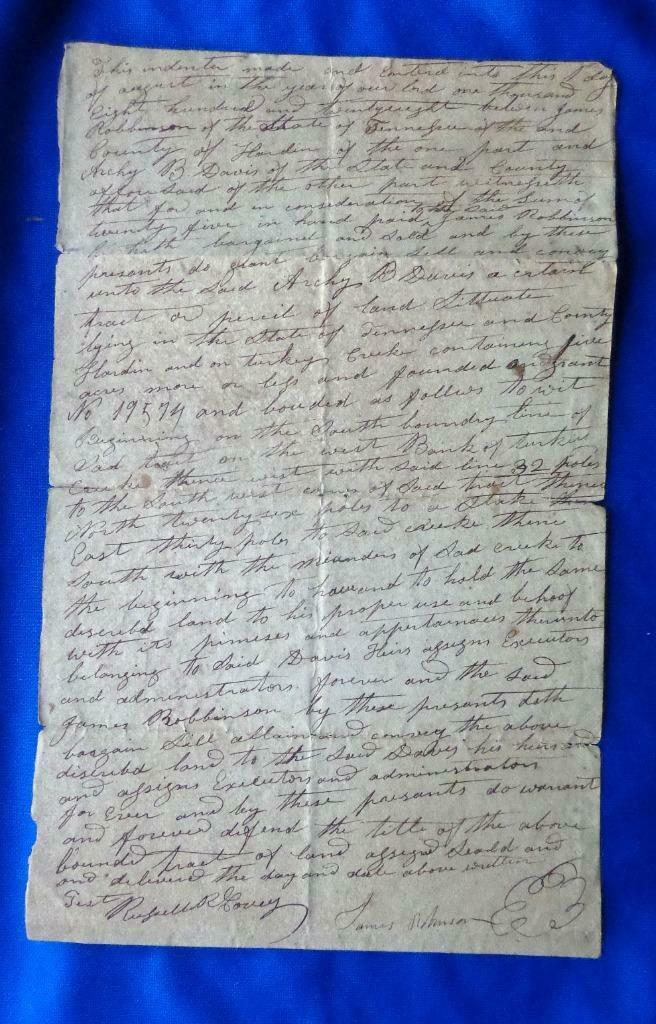 This indenter made and Entered into this 1 day
of august in the year of our lord one thousand
Eight hundred and twentyeight between James
Robbinson of the State of Tennessee of the and
County of Hardin of the one part and
Archy B Davis of the State and County
aforesaid of the other part witnesseth
that for and in consideration of the Sum of
twenty five in hand paid the said James Robbinson
hath bargained and Sold and by these
presants do grant bargain Sell and convey
unto the Said Archy B Davis a certain
tract or percil of land Sittuate
lying in the State of Tennessee and County
Hardin and on turkey Creek containing five
acres more or less and founded on grant
No 19574 and bouded as follows to wit
Beginning on the South boundry line of
Sad tract on the west Bank of turkey
Creeke thence west with said line 32 poles
to the South west corner of Said tract thence
North twentysix poles to a Stake
East thirty poles to Said creeke thence
South with the meanders of Sad creeke to
the beginning to have and to hold the Same
describd land to his proper use and behoof
with its primises and appertainances thereunto
belonging to Said Davis Heirs assigns Executors
and administrators forever and the Said
James Robbinson by these presants doth
bargain Sell allain and convey the above
discribd land to the Said Davis his heirs and
and assigns Executors and administrators
for Ever and by these presants do warant
and forever difend the title of the above
bounded tract of land assignd Seald and
and delivered the day and date above written
Test
Russell R Covey
James Robinson